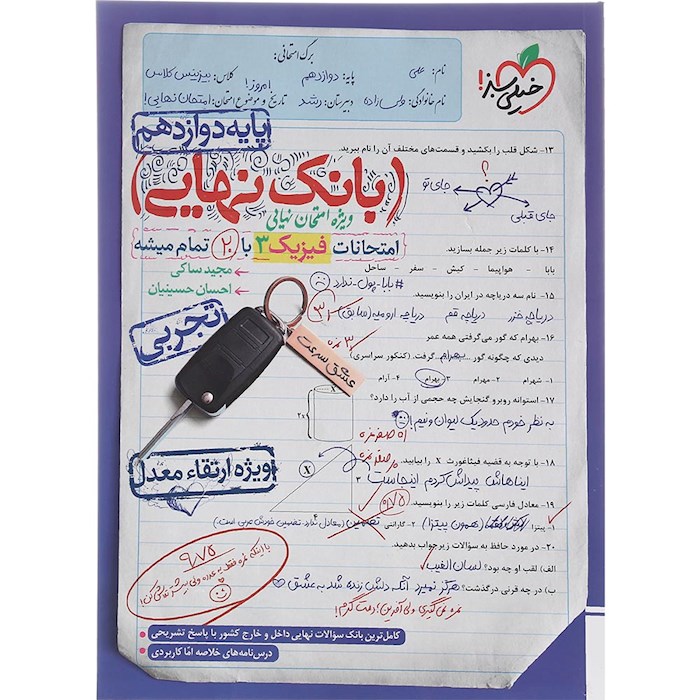 برگ امتحانی:
خیلی سبز!
نام: علی
پایه: دوازدهم
کلاس: بیزینس کلاس
نام خانوادگی: ولی زاده
دبیرستان: رشد
تاریخ و موضوع امتحان: امروز! امتحان نهایی!
پایه دوازدهم
۱۳- شکل قلب را بکشید و قسمت‌های مختلف آن را نام ببرید.
؟
جای تو
جای قبلی
(بانک نهایی)
ویژه امتحان نهایی
امتحانات فیزیک ۳ با ۲۰ تمام میشه
مجید ساکی
احسان حسینیان
تجربی
۱۴- با کلمات زیر جمله بسازید.
بابا - هواپیما - کیش - سفر - ساحل
#بابا-پول-ندارد
۱۵- نام سه دریاچه در ایران را بنویسید.
دریاچه خزر دریاچه قم دریاچه ارومیه (سابق)
۱۶- بهرام که گور می‌گرفتی همه عمر
دیدی که چگونه گور بهرام گرفت. (کنکور سراسری)
۱- شهرام ۲- مهرام ۳- بهرام ۴- آرام
عشق سرعت
۱۷- استوانه روبرو گنجایش چه حجمی از آب را دارد؟
X
۲x
به نظر خودم حدود یک لیوان و نیم!
ویژه ارتقاء معدل
۱۸- با توجه به قضیه فیثاغورث X را بیابید.
X
۳
۴
ایناهاش پیداش کردم اینجاست
۱۹- معادل فارسی کلمات زیر را بنویسید.
۰/۷۵
۱- پیتزا (همون پیتزا) ۲- گارانتی تضمین (معادل ندارد. تضمین خودش عربی است.)
۲۰- در مورد حافظ به سؤالات زیر جواب بدهید.
الف) لقب او چه بود؟ لسان الغیب
ب) در چه قرنی درگذشت؟ هرگز نمیرد آنکه دلش زنده شد به عشق
نمره نمی‌گیری ولی آفرین! دمت گرم!
۹/۷۵
کامل‌ترین بانک سؤالات نهایی داخل و خارج کشور با پاسخ تشریحی
درس‌نامه‌های خلاصه امّا کاربردی